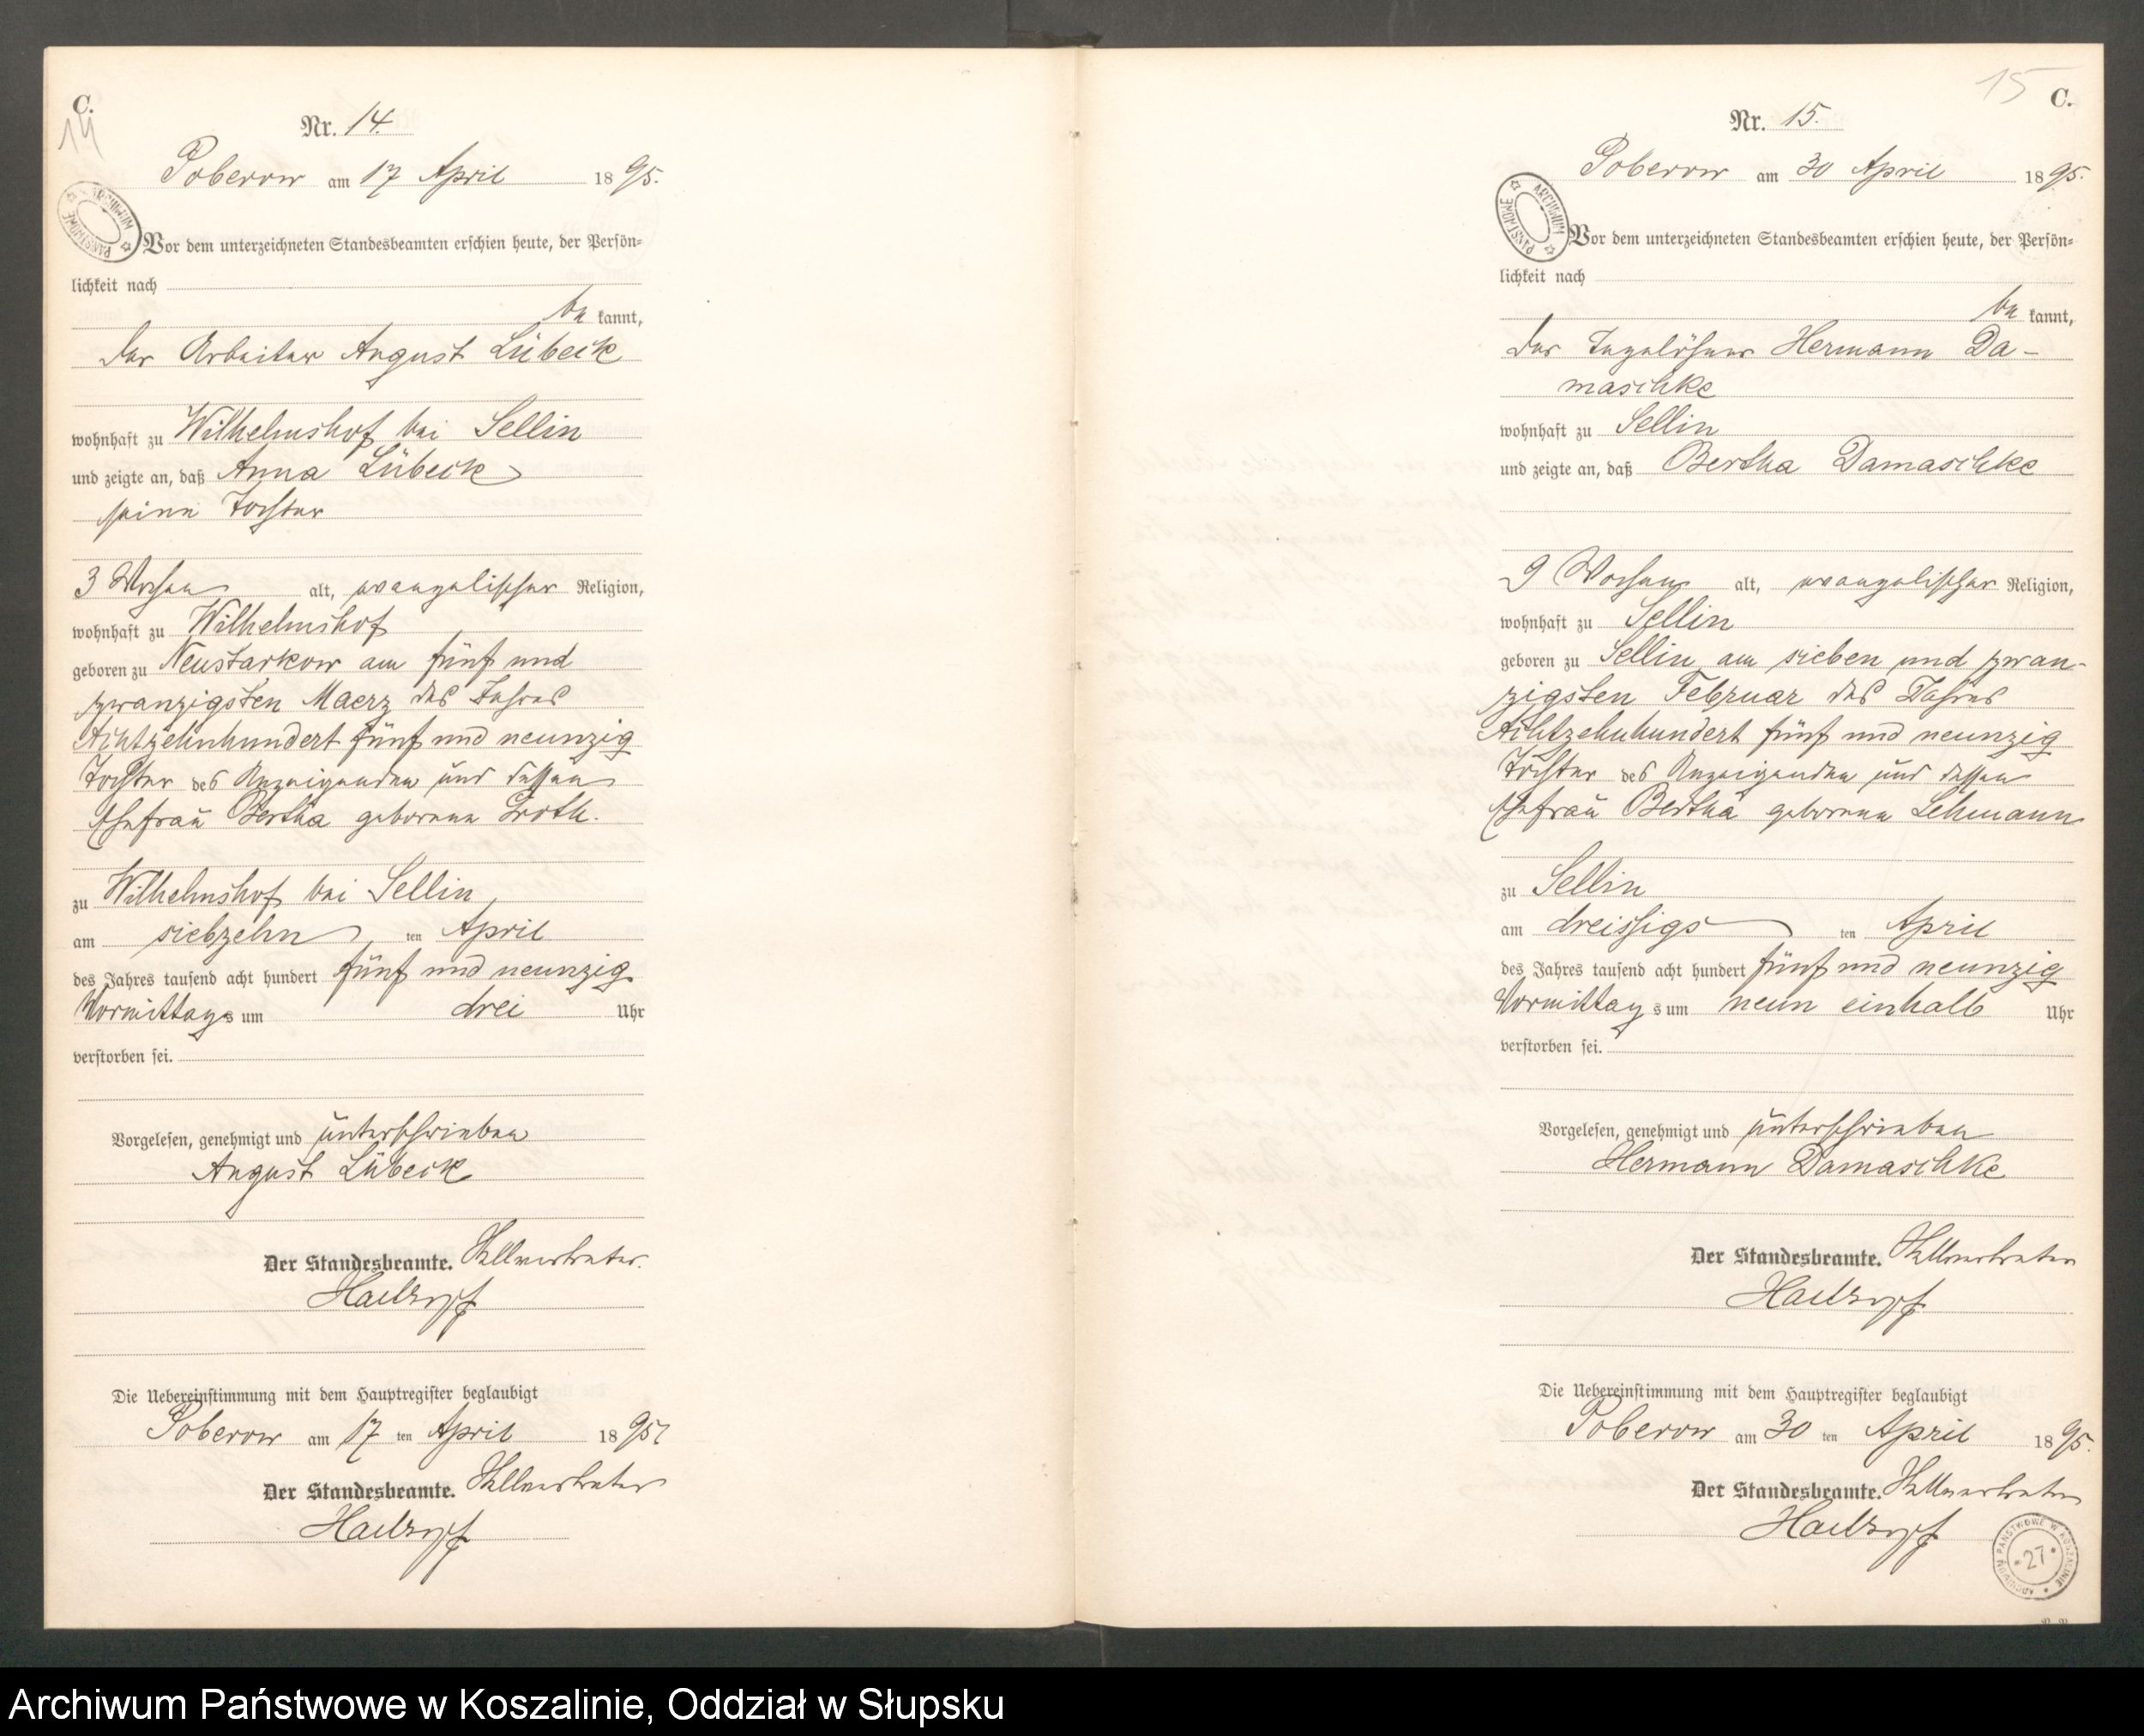 C.
14
Nr. 14.
Poberow am 17 April 1895.
Vor dem unterzeichneten Standesbeamten erschien heute, der Persön=
lichkeit nach
be kannt,
der Arbeiter August Lübeck
wohnhaft zu Wilhelmshof bei Sellin
und zeigte an, daß Anna Lübeck
seine Tochter
3 Wochen alt, evangelischer Religion,
wohnhaft zu Wilhelmshof
geboren zu Neustarkow am fünf und
zwanzigsten Maerz des Jahres
Achtzehnhundert fünf und neunzig
Tochter des Anzeigenden und dessen
Ehefrau Bertha geborene Groth.
zu Wilhelmshof bei Sellin
am siebzehn ten April
des Jahres tausend acht hundert fünf und neunzig
Vormittags um drei Uhr
verstorben sei.
Vorgelesen, genehmigt und unterschrieben
August Lübeck
Der Standesbeamte. Stellvertreter.
Die Uebereinstimmung mit dem Hauptregister beglaubigt
Poberow am 17 ten April 1895
Der Standesbeamte. Stellvertreter
15 C.
Nr. 15.
Poberow am 30 April 1895.
ARCHIWUM PAŃSTWOWE
Vor dem unterzeichneten Standesbeamten erschien heute, der Persön=
lichkeit nach
be kannt,
der Tagelöhner Hermann Da-
maschke
wohnhaft zu Sellin
und zeigte an, daß Bertha Damaschke
9 Wochen alt, evangelischer Religion,
wohnhaft zu Sellin
geboren zu Sellin am sieben und zwan-
zigsten Februar des Jahres
Achtzehnhundert fünf und neunzig
Tochter des Anzeigenden und dessen
Ehefrau Bertha geborene Lehmann
zu Sellin
am dreissigs ten April
des Jahres tausend acht hundert fünf und neunzig
Vormittags um neun einhalb Uhr
verstorben sei.
Vorgelesen, genehmigt und unterschrieben
Hermann Damaschke
Der Standesbeamte. Stellvertreter
Die Uebereinstimmung mit dem Hauptregister beglaubigt
Poberow am 30 ten April 1895.
Der Standesbeamte. Stellvertreter
ARCHIWUM PAŃSTWOWE W KOSZALINIE
27
Archiwum Państwowe w Koszalinie, Oddział w Słupsku